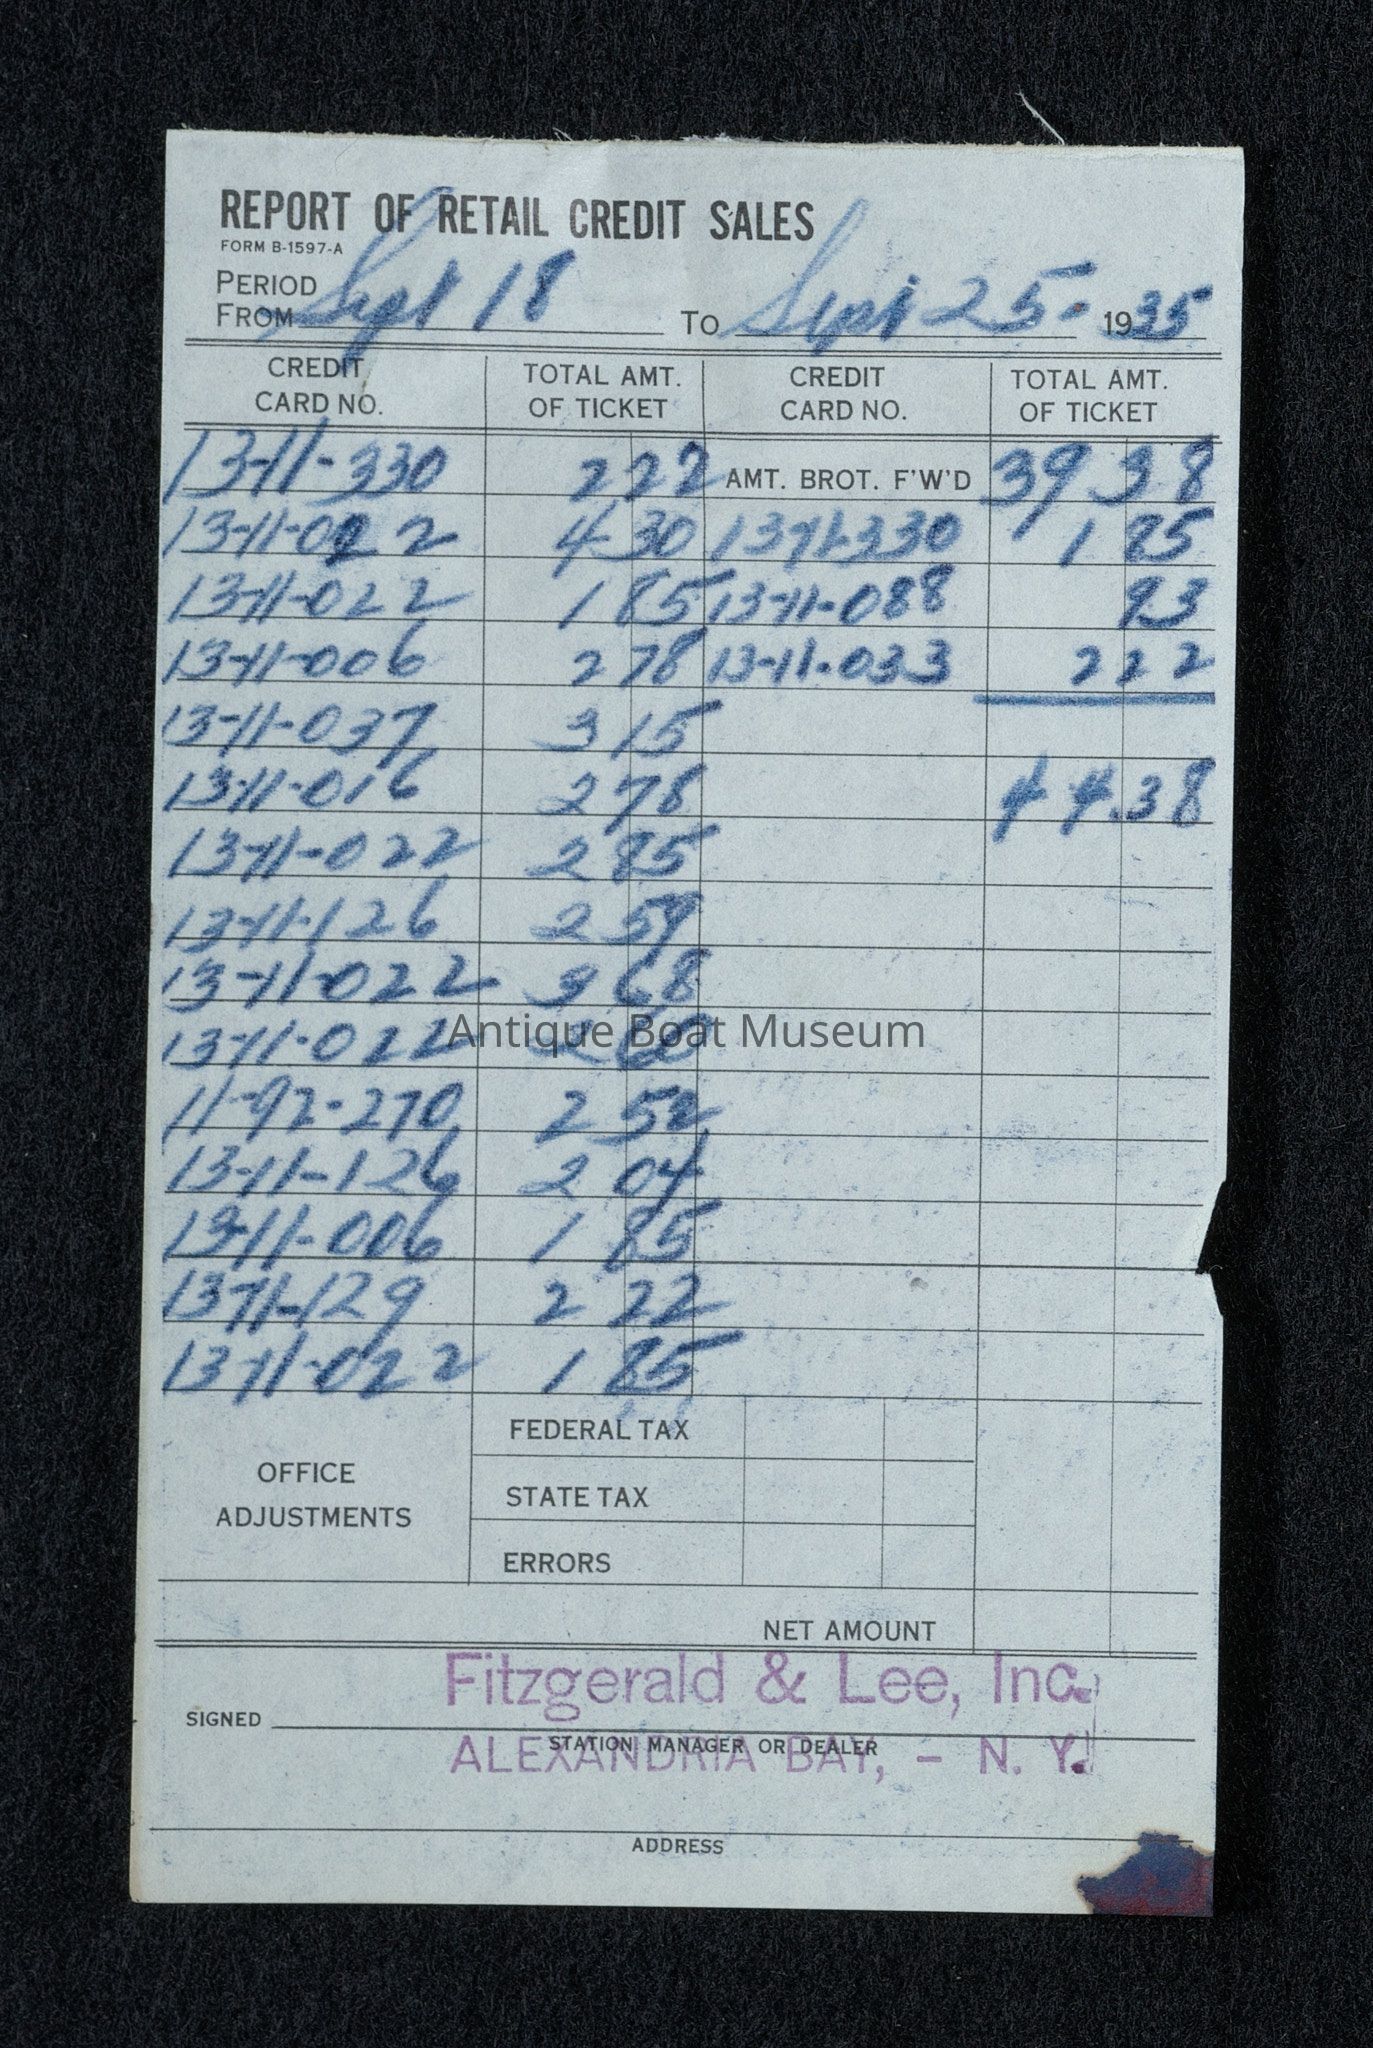 REPORT OF RETAIL CREDIT SALES
FORM B-1597-A
PERIOD
FROM Sept 18 TO Sept 25. 1935
CREDIT CARD NO. TOTAL AMT. OF TICKET CREDIT CARD NO. TOTAL AMT. OF TICKET
13-11-330 2 22 AMT. BROT. F'W'D 39 38
13-11-022 4 30 13-11-330 1 85
13-11-022 1 85 13-11-088 93
13-11-006 2 78 13-11-033 2 22
13-11-037 3 15
13-11-016 2 78 44.38
13-11-022 2 85
13-11-126 2 59
13-11-022 3 68
13-11-022
Antique Boat Museum
11-92-270 2 52
13-11-126 2 04
13-11-006 1 85
13-11-129 2 22
13-11-022 1 85
OFFICE ADJUSTMENTS
FEDERAL TAX
STATE TAX
ERRORS
NET AMOUNT
Fitzgerald & Lee, Inc.
SIGNED
STATION MANAGER OR DEALER
ALEXANDRIA BAY, - N. Y.
ADDRESS